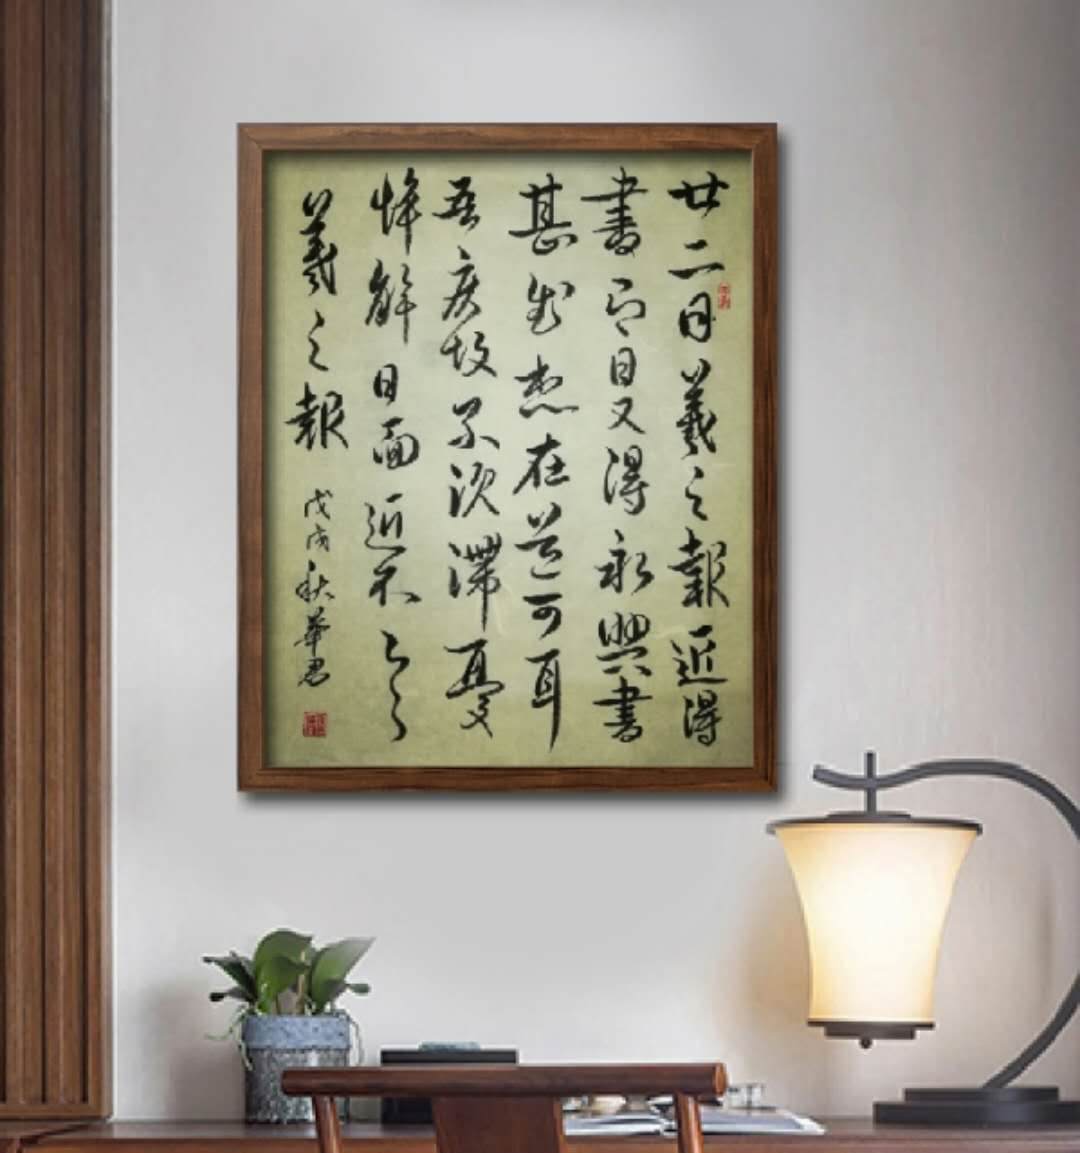 廿二日羲之報近得
書即日又得永興書
甚慰想在道可耳
吾疾故尔沉滯憂
悴解日面近不
羲之報
戊戌秋華君